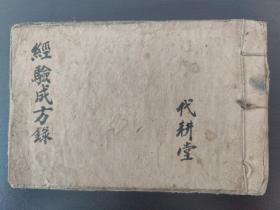 經驗成方錄
代耕堂